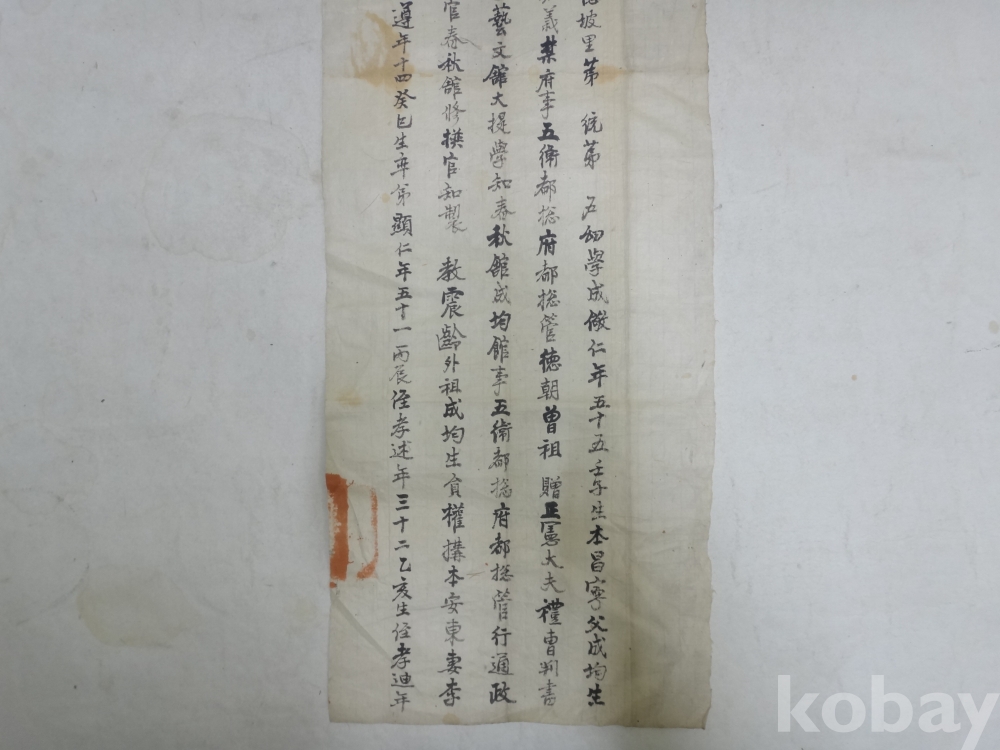 坡里第 統第 戶幼學成儆仁年五十五壬午生本昌寧父成均生
義禁府事五衛都摠府都摠管德朝曾祖 贈正憲大夫禮曹判書
藝文館大提學知春秋館成均館事五衛都摠府都摠管行通政
官春秋館修撰官知製 教震齡外祖成均生員權搆本安東妻李
遵年十四癸巳生率弟顯仁年五十一丙辰侄孝述年三十二乙亥生侄孝迪年
kobay